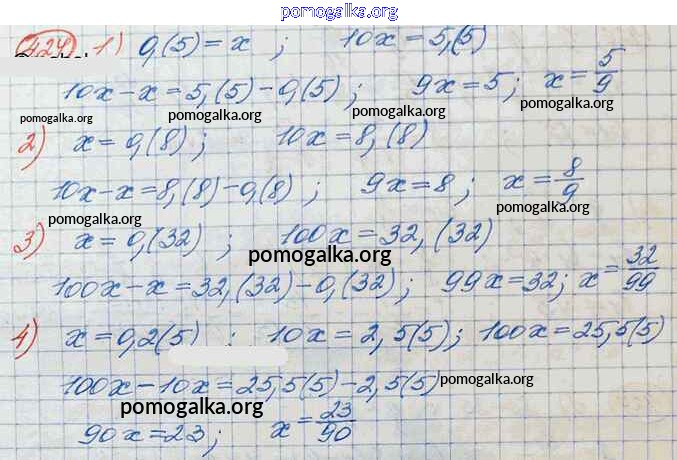 pomogalka.org
424 1) 0,(5) = x ; 10x = 5,(5)
10x - x = 5,(5) - 0,(5) ; 9x = 5 ; x = 5/9
pomogalka.org pomogalka.org pomogalka.org pomogalka.org
2) x = 0,(8) ; 10x = 8,(8)
10x - x = 8,(8) - 0,(8) ; 9x = 8 ; x = 8/9
pomogalka.org pomogalka.org
3) x = 0,(32) ; 100x = 32,(32)
pomogalka.org
100x - x = 32,(32) - 0,(32) ; 99x = 32 ; x = 32/99
4) x = 0,2(5) ; 10x = 2,5(5) ; 100x = 25,5(5)
100x - 10x = 25,5(5) - 2,5(5) pomogalka.org
pomogalka.org
90x = 23 ; x = 23/90